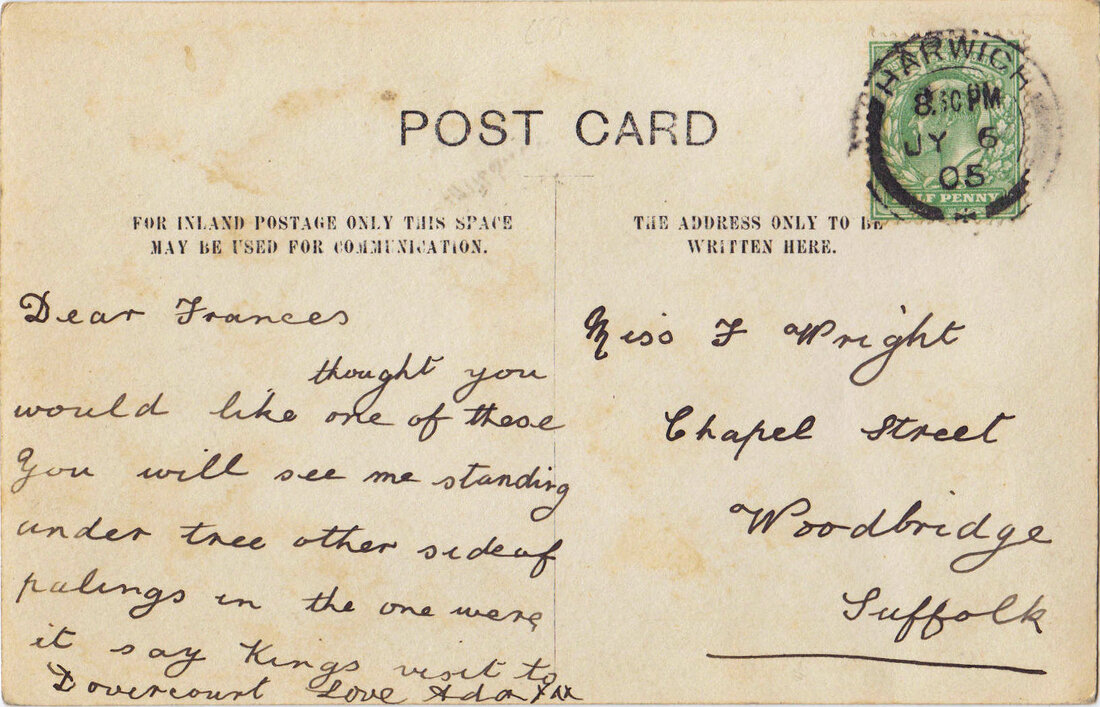 POST CARD
HARWICH
8.30 PM
JY 6
05
HALF PENNY
FOR INLAND POSTAGE ONLY THIS SPACE
MAY BE USED FOR COMMUNICATION.
THE ADDRESS ONLY TO BE
WRITTEN HERE.
Dear Frances
thought you
would like one of these
You will see me standing
under tree other side of
palings in the one were
it say Kings visit to
Dovercourt Love Ada xxx
Miss F Wright
Chapel Street
Woodbridge
Suffolk